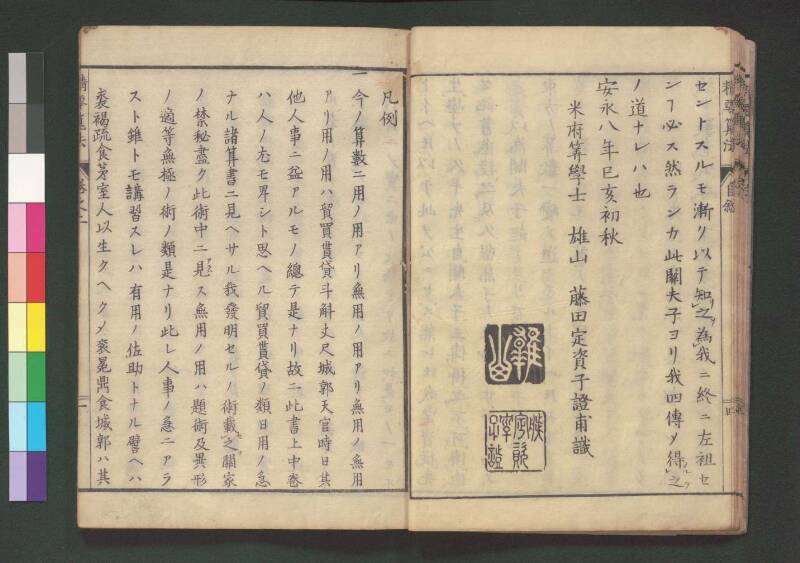 セントスルモ漸ク以テ知之為我ニ終ニ左袒セ
ンヿ必ス然ランカ此關夫子ヨリ我四傳メ得之
ノ道ナレハ也
安永八年已亥初秋
米府筭學士 雄山 藤田定資子證甫識
凡例
一今ノ算數ニ用ノ用アリ無用ノ用アリ無用ノ無用
アリ用ノ用ハ貿買貰貸斗斛丈尺城郭天官時日其
他人事ニ益アルモノ總テ是ナリ故ニ此書上中巻
ハ人ノ尤モ卑シト思ヘル貿買貰貸ノ類日用ノ急
ナル諸算書ニ見ヘサル我發明セルノ術載之關家
ノ禁秘盡ク此術中ニ見ス無用ノ用ハ題術及異形
ノ適等無極ノ術ノ類是ナリ此レ人事ノ急ニアラ
スト雖トモ講習スレハ有用ノ佐助トナル譬ヘハ
裘褐疏食茅室人以生クヘクメ袞冕鼎食城郭ハ其
精要算法
自叙